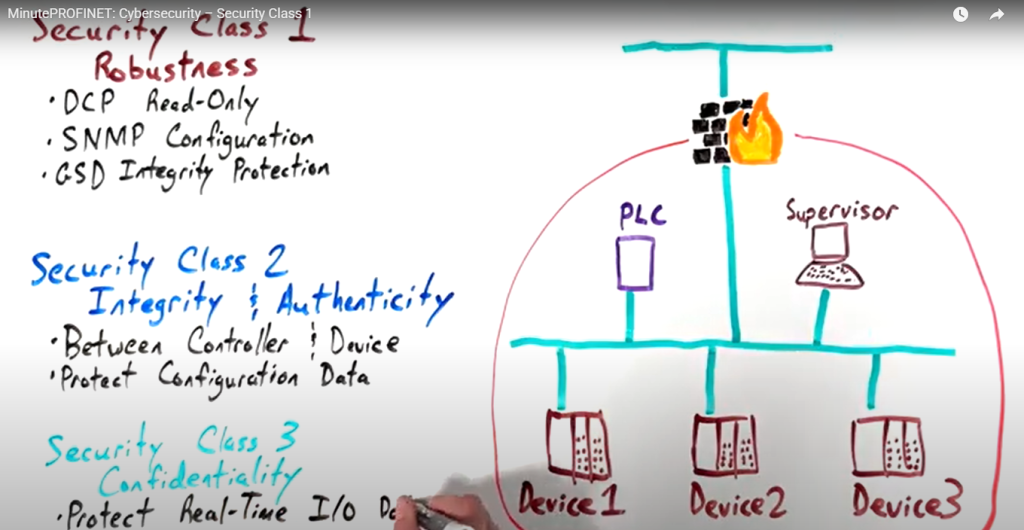 MinutePROFINET: Cybersecurity – Security Class 1
Security Class 1
Robustness
• DCP Read-Only
• SNMP Configuration
• GSD Integrity Protection
Security Class 2
Integrity & Authenticity
• Between Controller & Device
• Protect Configuration Data
Security Class 3
Confidentiality
• Protect Real-Time I/O
PLC
Supervisor
Device1
Device2
Device3